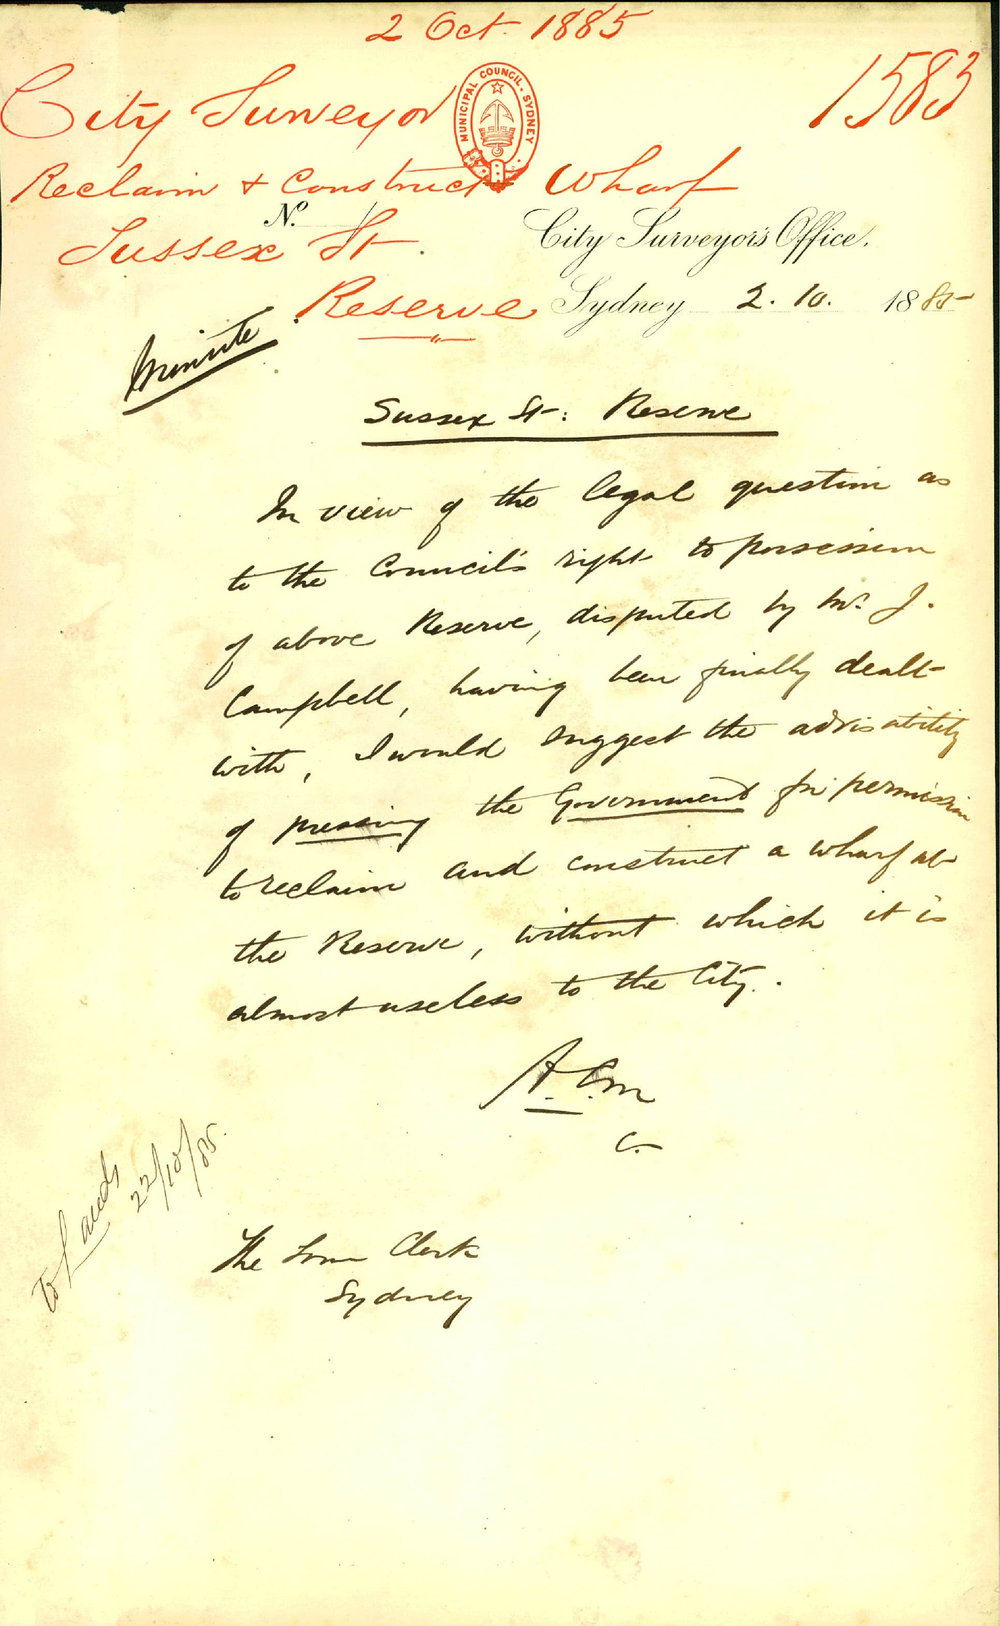 2 Oct. 1885
1583
City Surveyor
MUNICIPAL COUNCIL. SYDNEY
Reclaim + Construct Wharf
No.
Sussex St.
City Surveyor's Office.
Reserve
Sydney 2. 10. 1885
Minute
Sussex St: Reserve
In view of the legal question as
to the Council's right to possession
of above Reserve, disputed by Mr. J.
Campbell, having been finally dealt
with, I would suggest the advisability
of pressing the Government for permission
to reclaim and construct a wharf at
the Reserve, without which it is
almost useless to the City.
A. C. M
To Lands
22/10/85.
The Town Clerk
Sydney